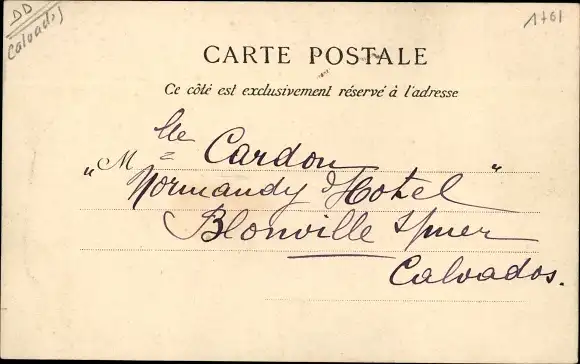 DD
Calvados
1761
CARTE POSTALE
Ce côté est exclusivement réservé à l'adresse
Mlle Cardon
"Normandy Hotel"
Blonville s/mer
Calvados.